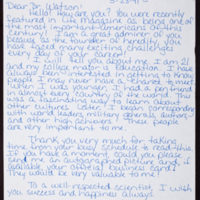 5-29-91
Dear Dr. Watson:
Hello! How are you? You were recently
featured in Life Magazine as being one of
the most important Americans of this
century! I am a great admirer of your
legacy as the founder of heredity. You
have faced many exciting challenges
every day of your career!
I will tell you about me. I am 21
and my college major is Education. I have
always been interested in getting to know
people I may never have a chance to meet.
When I was younger, I had a pen friend
in almost every country of the world. This
was a fascinating way to learn about
other cultures. Later, I began correspondence
with world leaders, military generals, authors
and other high achievers. These people
are very important to me.
Thank you very much for taking
time from your busy schedule to read this.
If you have a moment, could you please
send me an autographed picture (and, if
available, your default business card)?
They would be very valuable to me!
To a well-respected scientist, I wish
you success and happiness always.